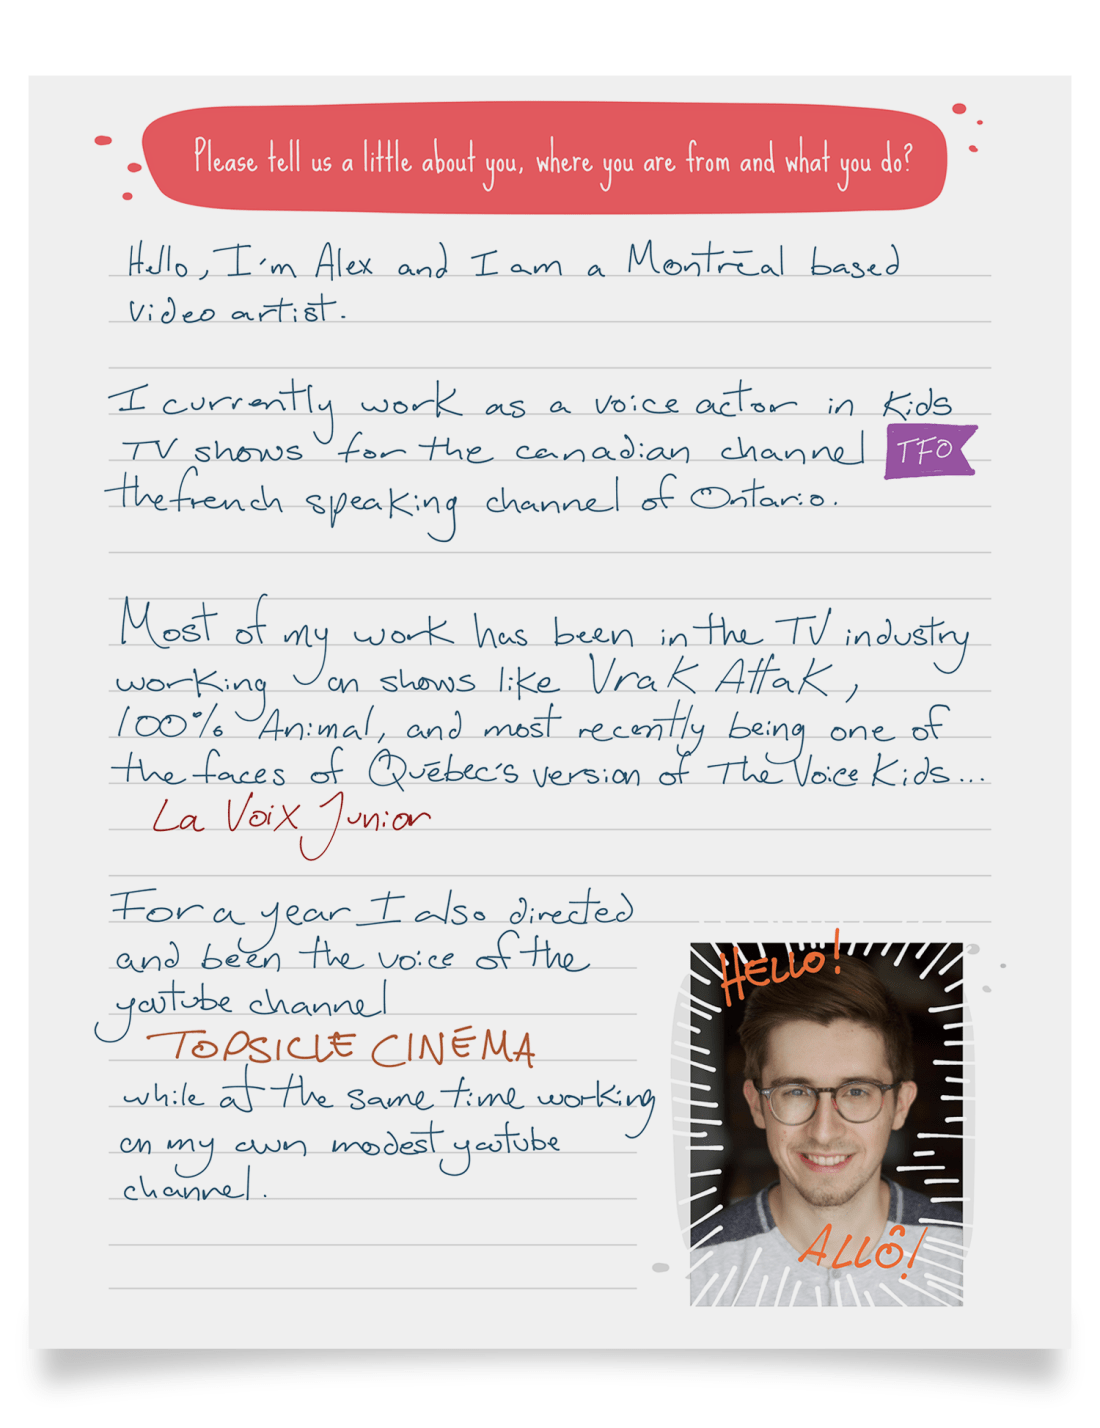 Please tell us a little about you, where you are from and what you do?
Hello, I'm Alex and I am a Montréal based
video artist.
I currently work as a voice actor in Kids
TV shows for the canadian channel TFO
the french speaking channel of Ontario.
Most of my work has been in the TV industry
working on shows like Vrak Attak,
100% Animal, and most recently being one of
the faces of Québec's version of The Voice Kids...
La Voix Junior
For a year I also directed
and been the voice of the
youtube channel
TOPSICLE CINÉMA
while at the same time working
on my own modest youtube
channel.
HELLO!
ALLÔ!